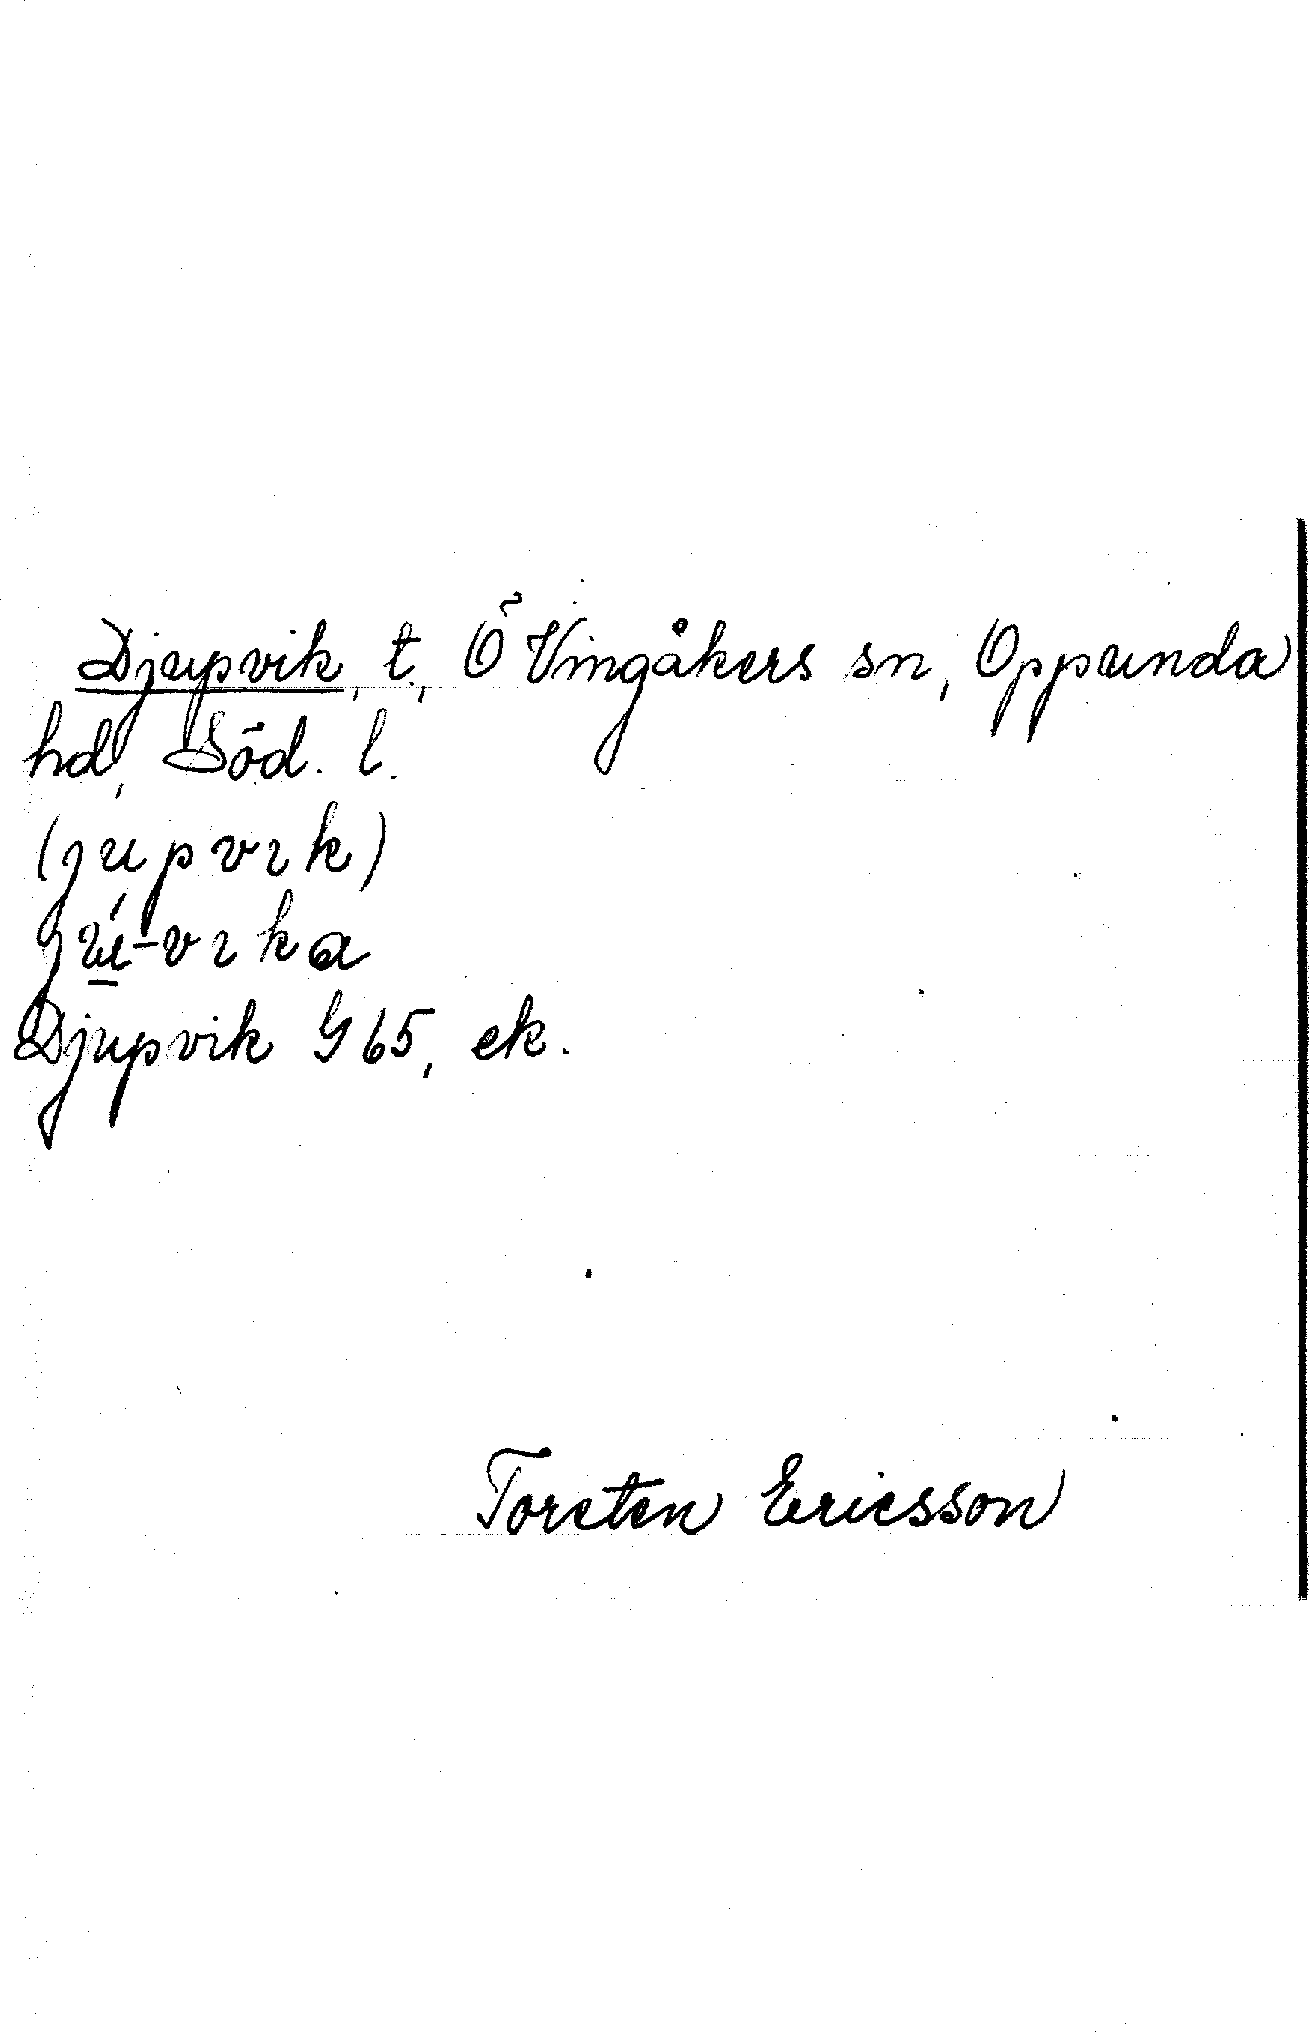 Djupvik, t., Ö Vingåkers sn, Oppunda
hd, Söd. l.
(jupvık)
jú-vıka
Djupvik G 65, ek.
Torsten Ericsson